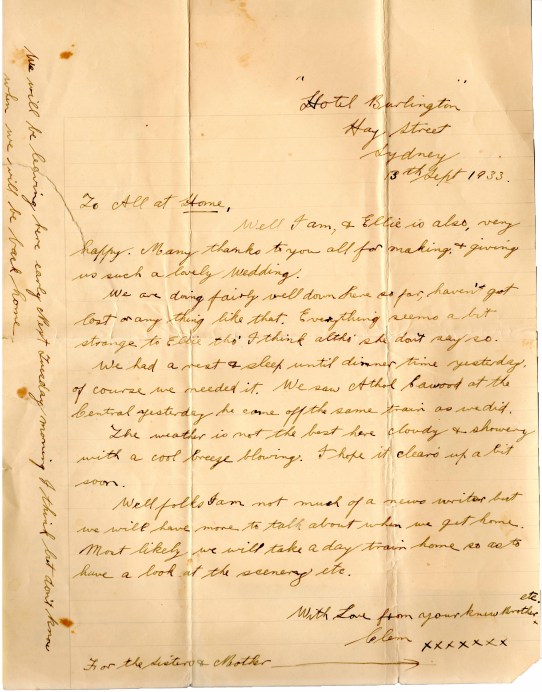 "Hotel Burlington"
Hay Street
Sydney
13th Sept 1933.
To All at Home,
Well I am, & Ellie is also, very
happy. Many thanks to you all for making & giving
us such a lovely Wedding.
We are doing fairly well down here so far, haven't got
lost or any thing like that. Everything seems a bit
strange to Ellie tho' I think altho' she don't say so.
We had a rest & sleep until dinner time yesterday.
of course we needed it. We saw Athol Cawood at the
Central yesterday he came off the same train as we did.
The weather is not the best here cloudy & showery
with a cool breeze blowing. I hope it clears up a bit
soon.
Well folks I am not much of a news writer but
we will have more to talk about when we get home.
Most likely we will take a day train home so as to
have a look at the scenery etc.
With Love from your knew Brother etc.
Clem xxxxxxx
For the Sisters & Mother
We will be leaving here early Next Tuesday morning I think but don't know
when we will be back home.